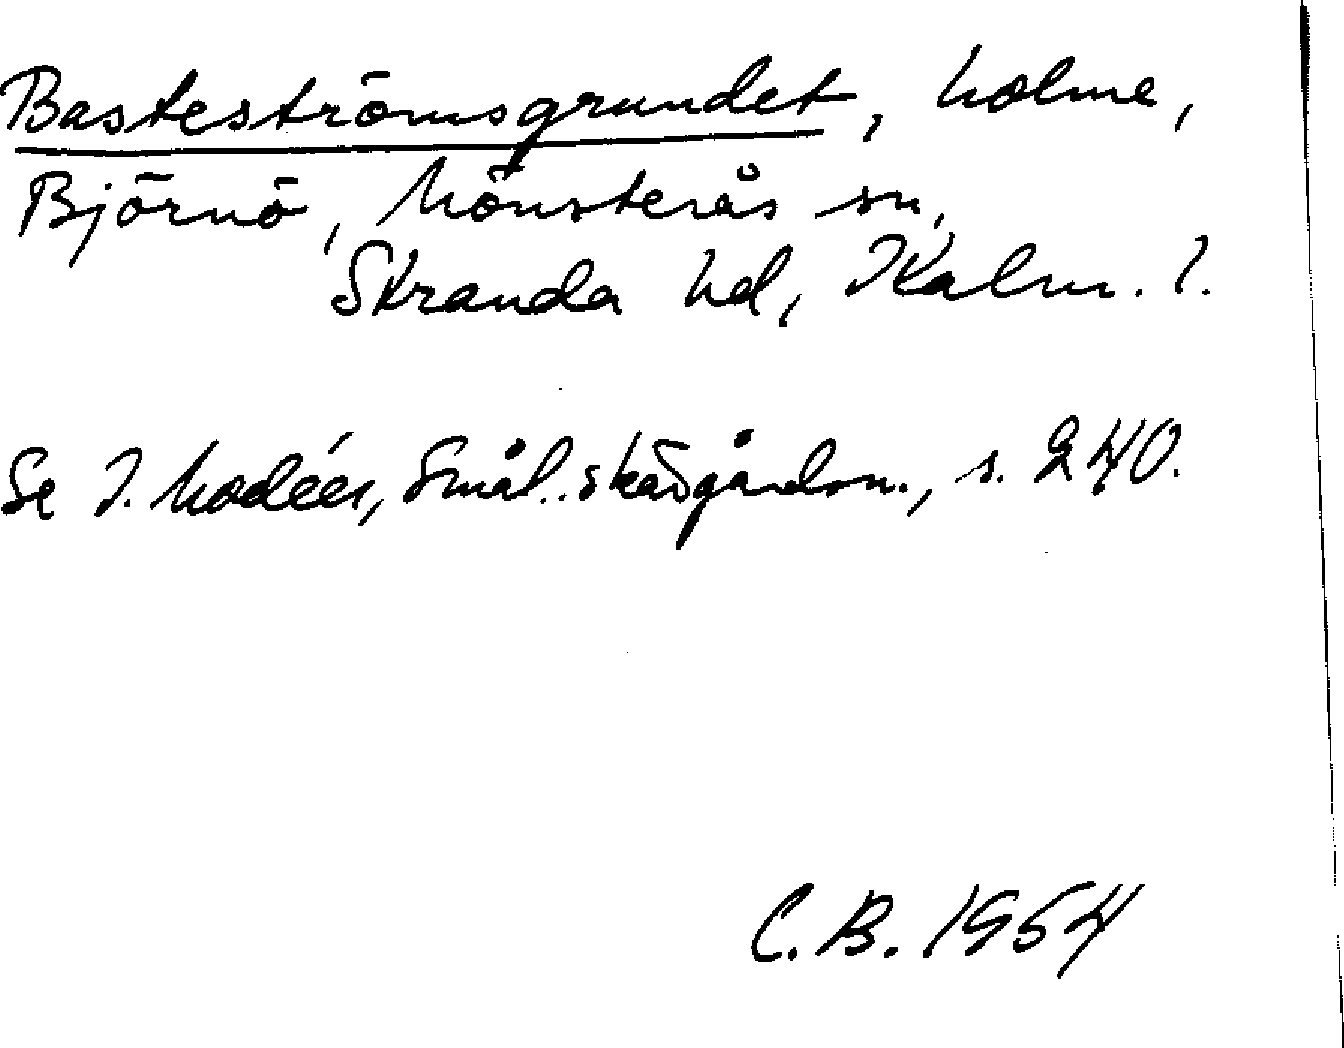 Basteströmsgrundet, holme,
Björnö, Mönsterås sn,
Stranda hd, Kalm. l.
Se I. Modéer, Smål. skärgårdsn., s. 240.
C. B. 1954